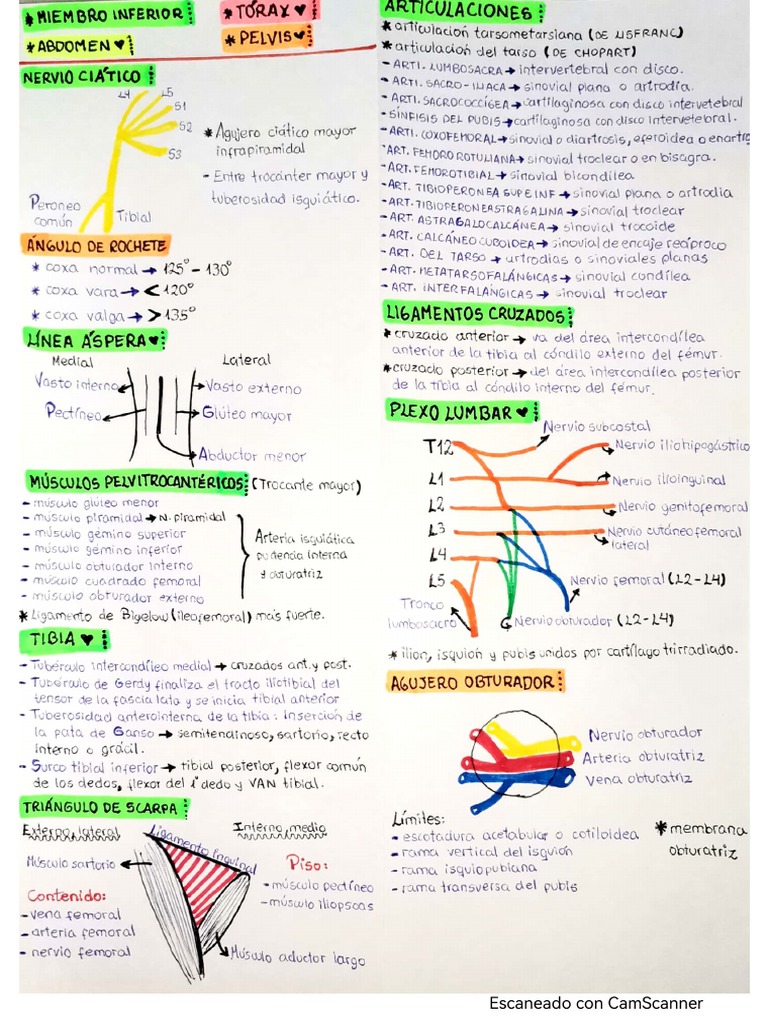 * MIEMBRO INFERIOR
* TÓRAX ♥
* ABDOMEN ♥
* PELVIS ♥
NERVIO CIÁTICO
L4
L5
S1
S2
S3
Peroneo
común
Tibial
* Agujero ciático mayor
infrapiramidal
- Entre trocánter mayor y
tuberosidad isquiático.
ÁNGULO DE ROCHETE
* coxa normal → 125° - 130°
* coxa vara → < 120°
* coxa valga → > 135°
LÍNEA ÁSPERA ♥
Medial
Lateral
Vasto interno
Vasto externo
Pectíneo
Glúteo mayor
Abductor menor
MÚSCULOS PELVITROCANTÉRICOS (Trocante mayor)
- músculo glúteo menor
- músculo piramidal → N. piramidal
- músculo gémino superior
- músculo gémino inferior
- músculo obturador interno
- músculo cuadrado femoral
- músculo obturador externo
Arteria isquiática
pudencia interna
y obturatriz
* Ligamento de Bigelow (ileofemoral) más fuerte.
TIBIA ♥
- Tubérculo intercondíleo medial → cruzados ant. y post.
- Tubérculo de Gerdy finaliza el tracto iliotibial del
tensor de la fascia lata y se inicia tibial anterior
- Tuberosidad anterointerna de la tibia: Inserción de
la pata de Ganso → semitendinoso, sartorio, recto
interno o grácil.
- Surco tibial inferior → tibial posterior, flexor común
de los dedos, flexor del 1° dedo y VAN tibial.
TRIÁNGULO DE SCARPA
Externo, lateral
Interno, medio
Ligamento Inguinal
Músculo sartorio
Piso:
- músculo pectíneo
- músculo iliopsoas
Contenido:
- vena femoral
- arteria femoral
- nervio femoral
Músculo aductor largo
ARTICULACIONES
* articulación tarsometarsiana (DE LISFRANC)
* articulación del tarso (DE CHOPART)
- ARTI. LUMBOSACRA → intervertebral con disco.
- ARTI. SACRO-ILIACA → sinovial plana o artrodia.
- ARTI. SACROCOCCÍGEA → cartilaginosa con disco intervetebral
- SÍNFISIS DEL PUBIS → cartilaginosa con disco intervetebral.
- ARTI. COXOFEMORAL → sinovial o diartrosis, eferoidea o enartro
- ART. FEMOROROTULIANA → sinovial troclear o en bisagra.
- ART. FEMOROTIBIAL → sinovial bicondílea
- ART. TIBIOPERONEA SUPE INF → sinovial plana o artrodia
- ART. TIBIOPERONEASTRAGALINA → sinovial troclear
- ART. ASTRAGALOCALCÁNEA → sinovial trocoide
- ART. CALCÁNEOCUBOIDEA → sinovial de encaje recíproco
- ART. DEL TARSO → artrodias o sinoviales planas
- ART. METATARSOFALÁNGICAS → sinovial condílea
- ART. INTERFALÁNGICAS → sinovial troclear
LIGAMENTOS CRUZADOS
* cruzado anterior → va del área intercondílea
anterior de la tibia al cóndilo externo del fémur.
* cruzado posterior → del área intercondílea posterior
de la tibia al cóndilo interno del fémur.
PLEXO LUMBAR ♥
Nervio subcostal
T12
Nervio iliohipogástrico
L1
Nervio ilioinguinal
L2
Nervio genitofemoral
L3
Nervio cutáneo femoral
lateral
L4
L5
Nervio femoral (L2-L4)
Tronco
lumbosacro
Nervio obturador (L2-L4)
* ilion, isquion y pubis unidos por cartílago trirradiado.
AGUJERO OBTURADOR
Nervio obturador
Arteria obturatriz
Vena obturatriz
Límites:
- escotadura acetabular o cotiloidea
- rama vertical del isquion
- rama isquiopubiana
- rama transversa del pubis
* membrana
obturatriz
Escaneado con CamScanner